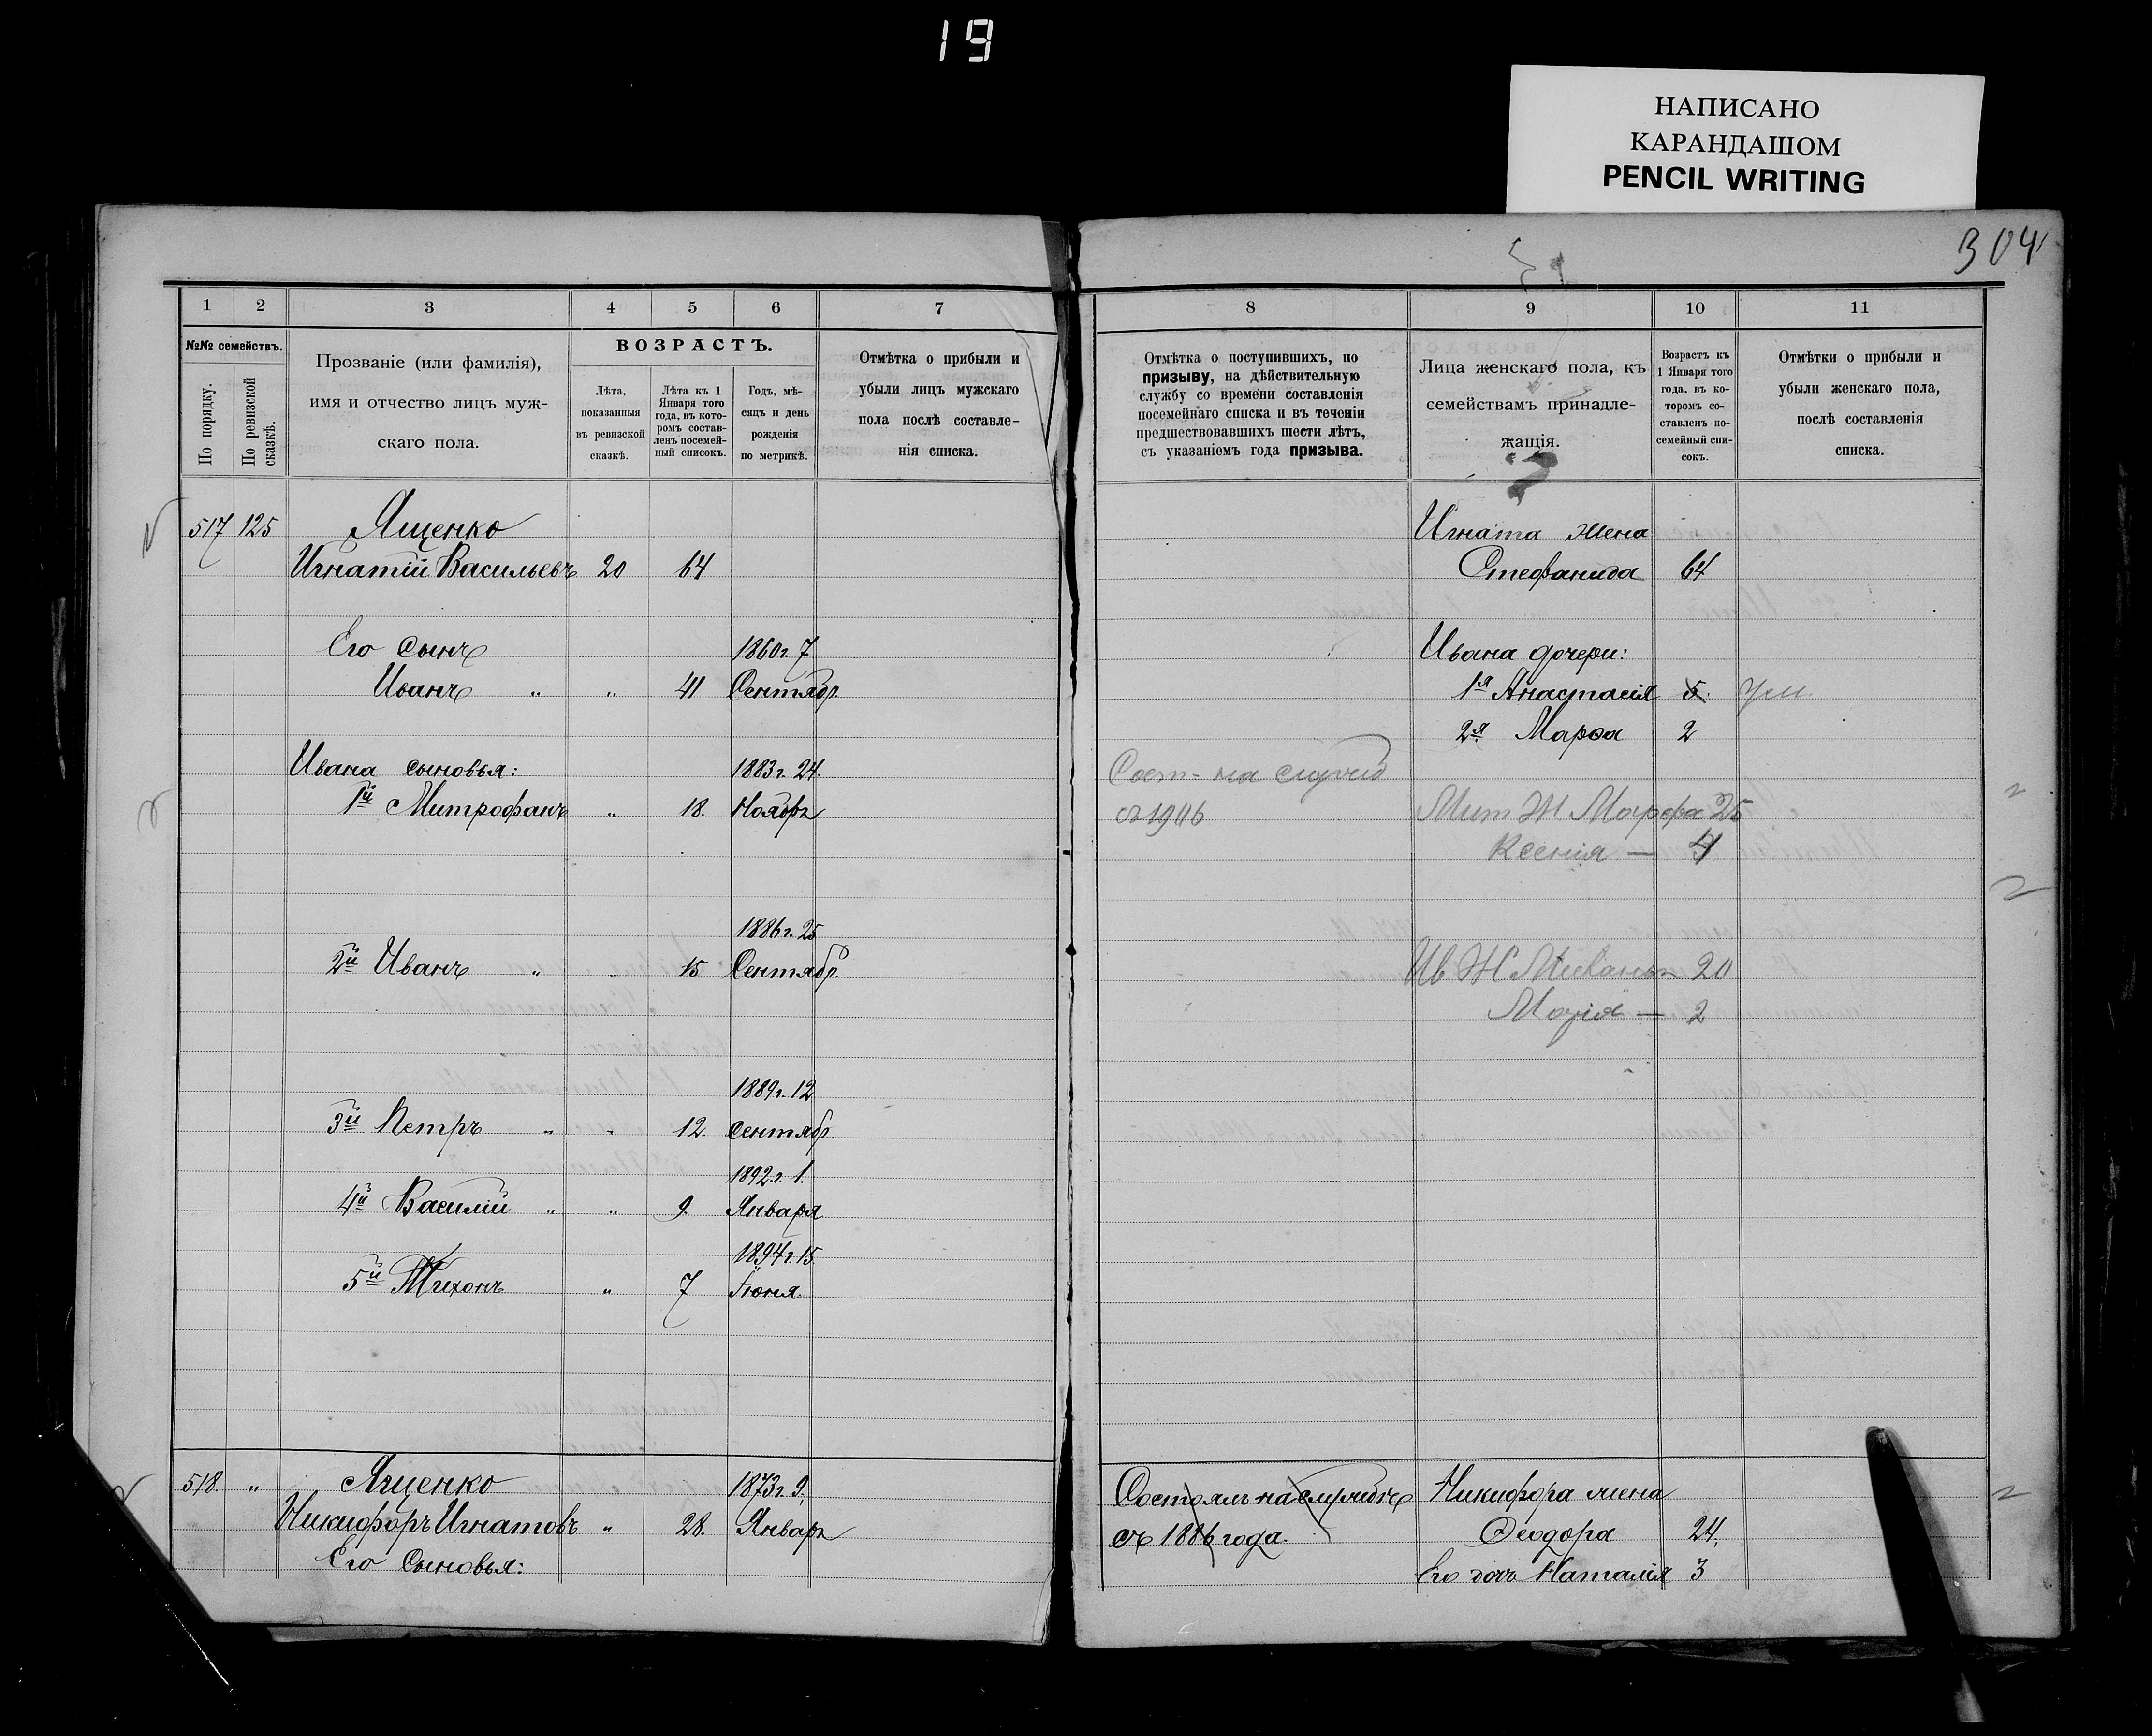 19
НАПИСАНО
КАРАНДАШОМ
PENCIL WRITING
304
1 2 3 4 5 6 7
№№ семействъ.
По порядку.
По ревизской сказкѣ.
Прозваніе (или фамилія),
имя и отчество лицъ муж-
скаго пола.
ВОЗРАСТЪ.
Лѣта,
показанныя
въ ревизской
сказкѣ.
Лѣта къ 1
Января того
года, въ кото-
ромъ состав-
ленъ посемей-
ный списокъ.
Годъ, мѣ-
сяцъ и день
рожденія
по метрикѣ.
Отмѣтка о прибыли и
убыли лицъ мужскаго
пола послѣ составле-
нія списка.
517 125 Ященко
Игнатій Васильевъ 20 64
Его сынъ 1860г. 7
Иванъ " " 41 Сентябр.
Ивана сыновья: 1883г. 24.
1й Митрофанъ " 18. Ноябрь
1886г. 25
2й Иванъ " 15 Сентябр.
1889г. 12
3й Петръ " " 12. Сентябр.
1892г. 1.
4й Василій " " 9. Января
1894г. 15
5й Тихонъ " 7 Іюня
518 " Ященко 1873г. 9.
Никифоръ Игнатовъ " 28. Январь
Его Сыновья:
8 9 10 11
Отмѣтка о поступившихъ, по
призыву, на дѣйствительную
службу со времени составленія
посемейнаго списка и въ теченіи
предшествовавшихъ шести лѣтъ,
съ указаніемъ года призыва.
Лица женскаго пола, къ
семействамъ принадле-
жащія.
Возрастъ къ
1 Января того
года, въ ко-
торомъ со-
ставленъ по-
семейный спи-
сокъ.
Отмѣтки о прибыли и
убыли женскаго пола,
послѣ составленія
списка.
Игната жена
Стефанида 64
Ивана дочери:
1я Анастасія 5. Ум.
2я Марѳа 2
Сост. на службѣ
съ 1906 Мит Ж Марфа 25
Ксенія — 4
Ив. Ж 20
Марія — 2
Состоялъ на службѣ Никифора жена
съ 1886 года. Ѳеодора 24.
Его дочь Наталія 3